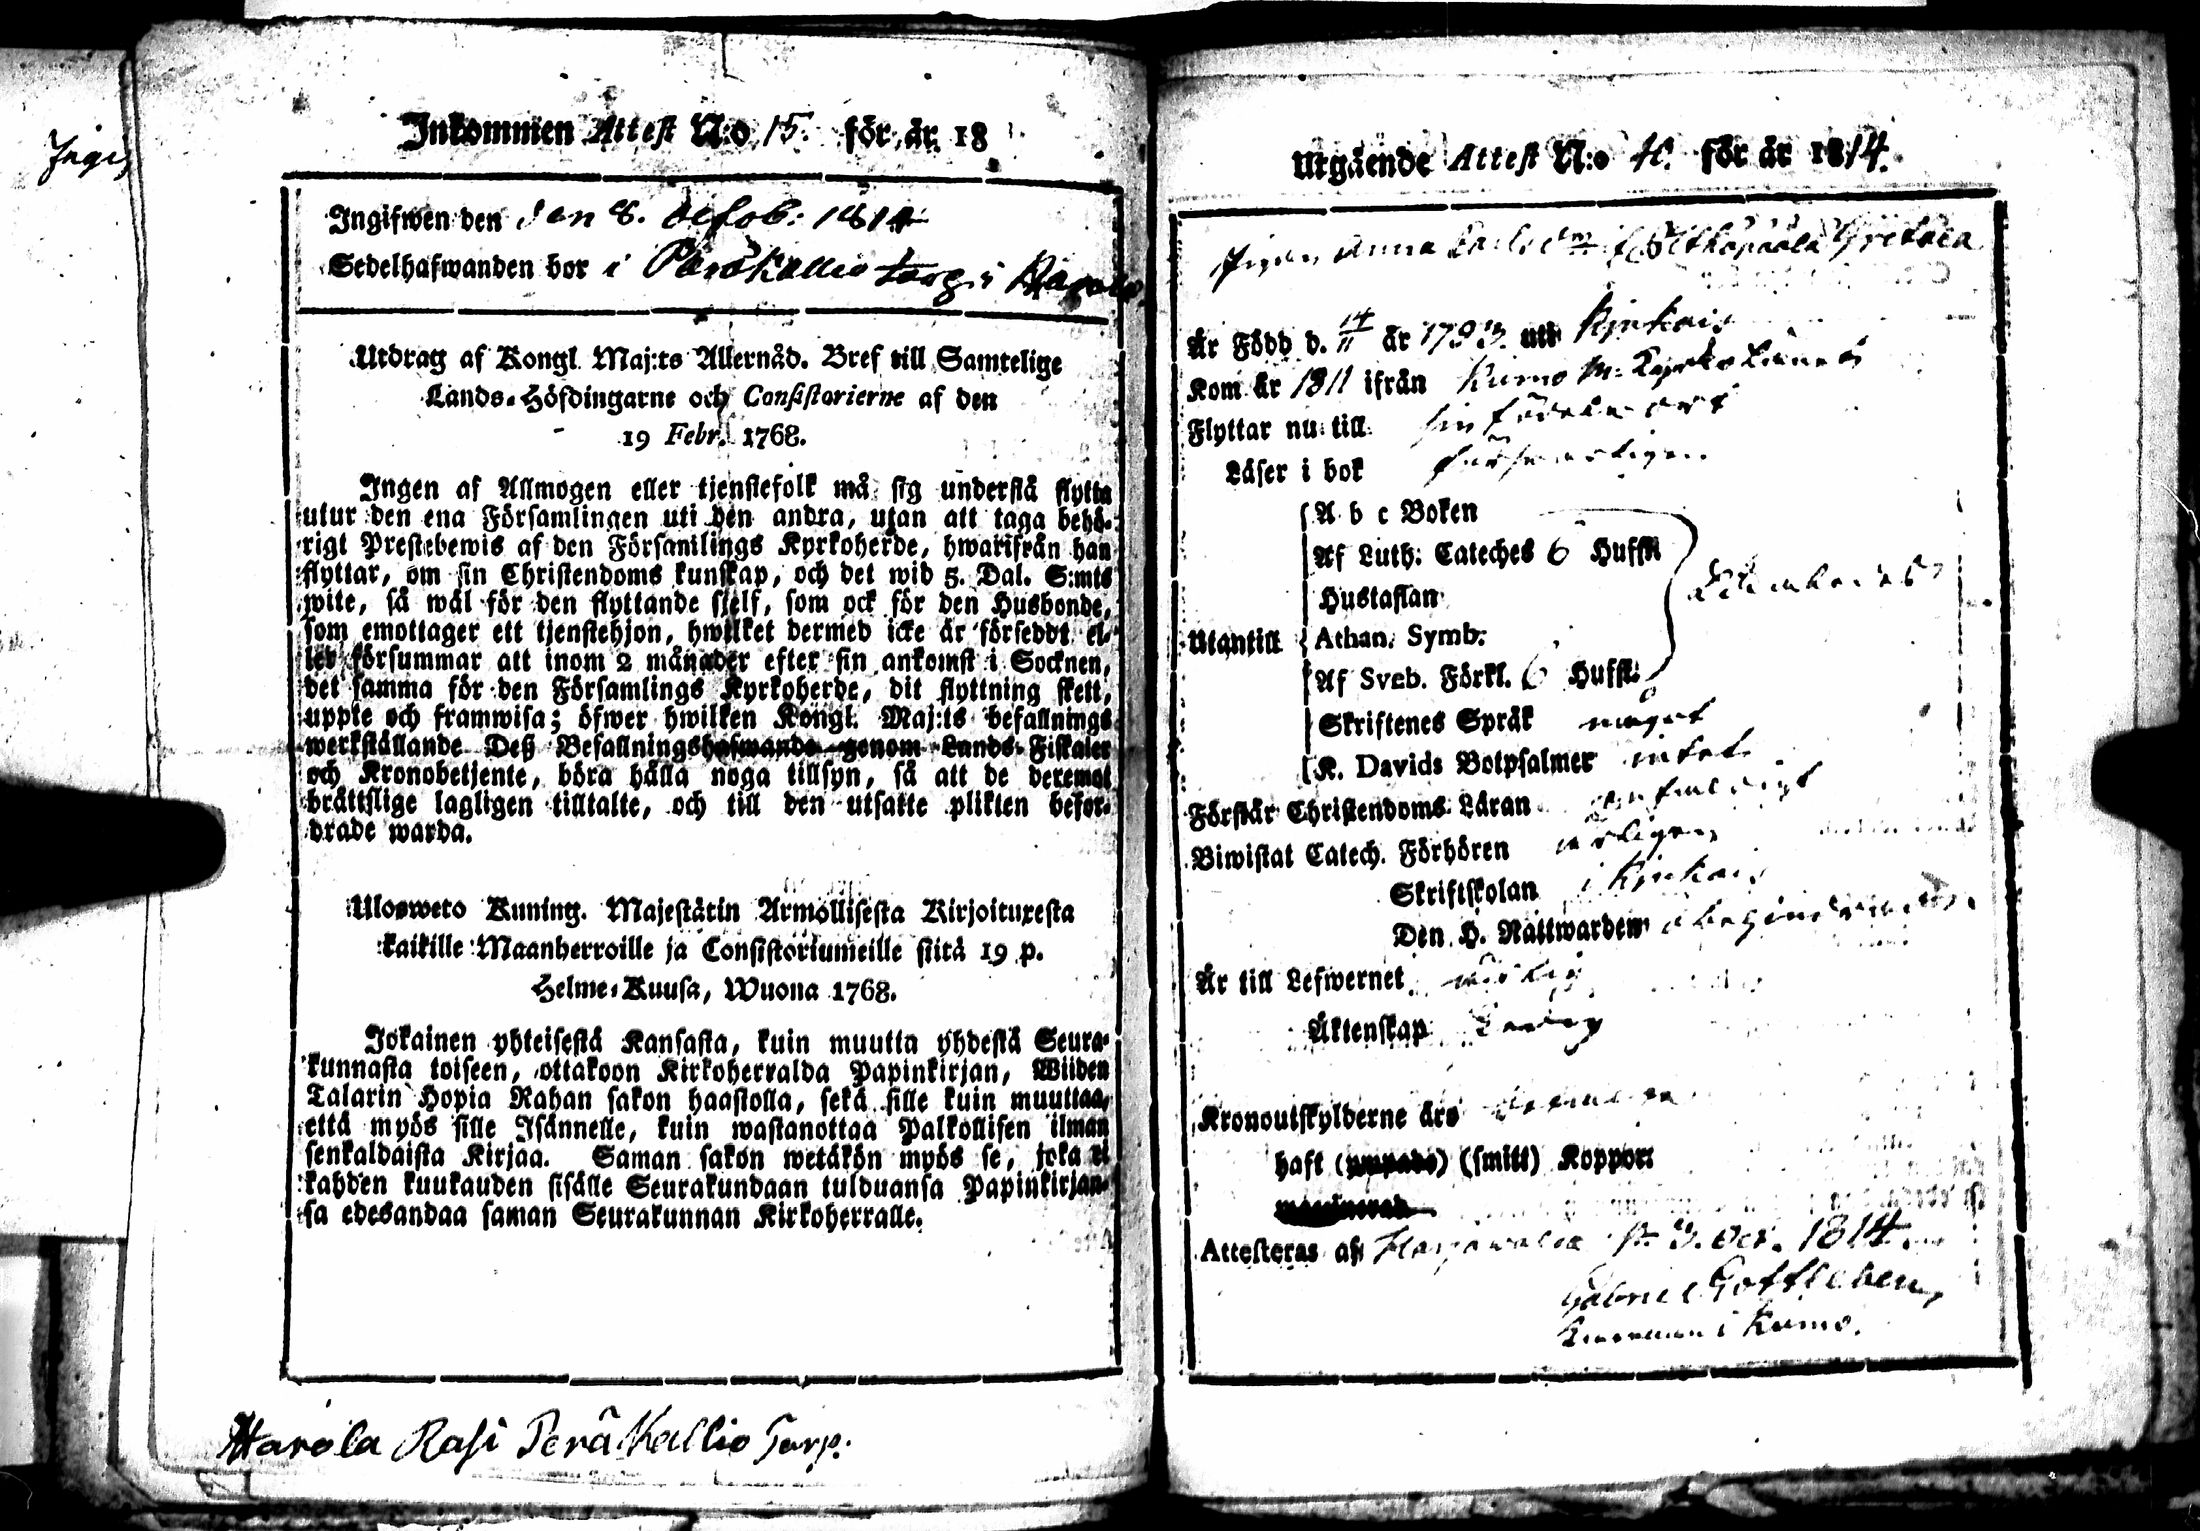 Inkommen Attest N:o 15. för år 18
Ingifwen den den 8. Octob: 1814
Sedelhafwanden bor i Peräkallio torp i
Utdrag af Kongl. Maj:ts Allernåd. Bref till Samtelige
Lands-Höfdingarne och Consistorierne af den
19 Febr. 1768.
Ingen af Allmogen eller tjenstefolk må sig understå flytta
utur den ena Församlingen uti den andra, utan att taga behö-
rigt Prestebewis af den Församlings Kyrkoherde, hwarifrån han
flyttar, om sin Christendoms kunskap, och det wid 5. Dal. S:mts
wite, så wäl för den flyttande sjelf, som ock för den Husbonde,
som emottager ett tjenstehjon, hwilket dermed icke är försedt el-
ler försummar att inom 2 månader efter sin ankomst i Socknen,
det samma för den Församlings Kyrkoherde, dit flyttning skett,
uppte och framwisa; öfwer hwilken Kongl. Maj:ts befallnings
werkställande Deß Befallningshafwande genom Lands-Fiskaler
och Kronobetjente, böra hålla noga tillsyn, så att de deremot
bråttslige lagligen tilltalte, och till den utsatte plikten befor-
drade warda.
Ulosweto Kuning. Majestätin Armollisesta Kirjoituxesta
kaikille Maanherroille ja Consistoriumeille siitä 19 p.
Helme-Kuusa, Wuona 1768.
Jokainen yhteisestä Kansasta, kuin muutta yhdestä Seura-
kunnasta toiseen, ottakoon Kirkoherralda Papinkirjan, Wiiden
Talarin Hopia Rahan sakon haastolla, sekä sille kuin muuttaa,
että myös sille Isännelle, kuin wastanottaa Palkollisen ilman
senkaldaista Kirjaa. Saman sakon wetäkön myös se, joka ei
kahden kuukauden sisälle Seurakundaan tulduansa Papinkirjan-
sa edesandaa saman Seurakunnan Kirkoherralle.
Harola Rasi Peräkallio Torp.
Utgående Attest N:o för år 1814.
Pigan Anna
Är Född d. 14/11 år 1793. uti Kjukais
Kom år 1811 ifrån Kumo
Flyttar nu till sin födelse ort
Läser i bok försvarligen
Utantill
A b c Boken
Af Luth: Cateches 6 Hufst:
Hustaflan
Athan. Symb.
Af Sveb. Förkl. 6 Hufst:
Skriftenes Språk något
K. Davids Botpsalmer intet
Förstår Christendoms Läran enfaldigt
Biwistat Catech. Förhören årligen
Skriftskolan i Kjukais
Den H. Nattwarden
Är till Lefwernet
Äktenskap Ledig
Kronoutskylderne äro
haft (ympade) (smitt) Koppor:
Attesteras af Harjawalda 3. Oct. 1814.
Gabriel Gottleben,
i Kumo.